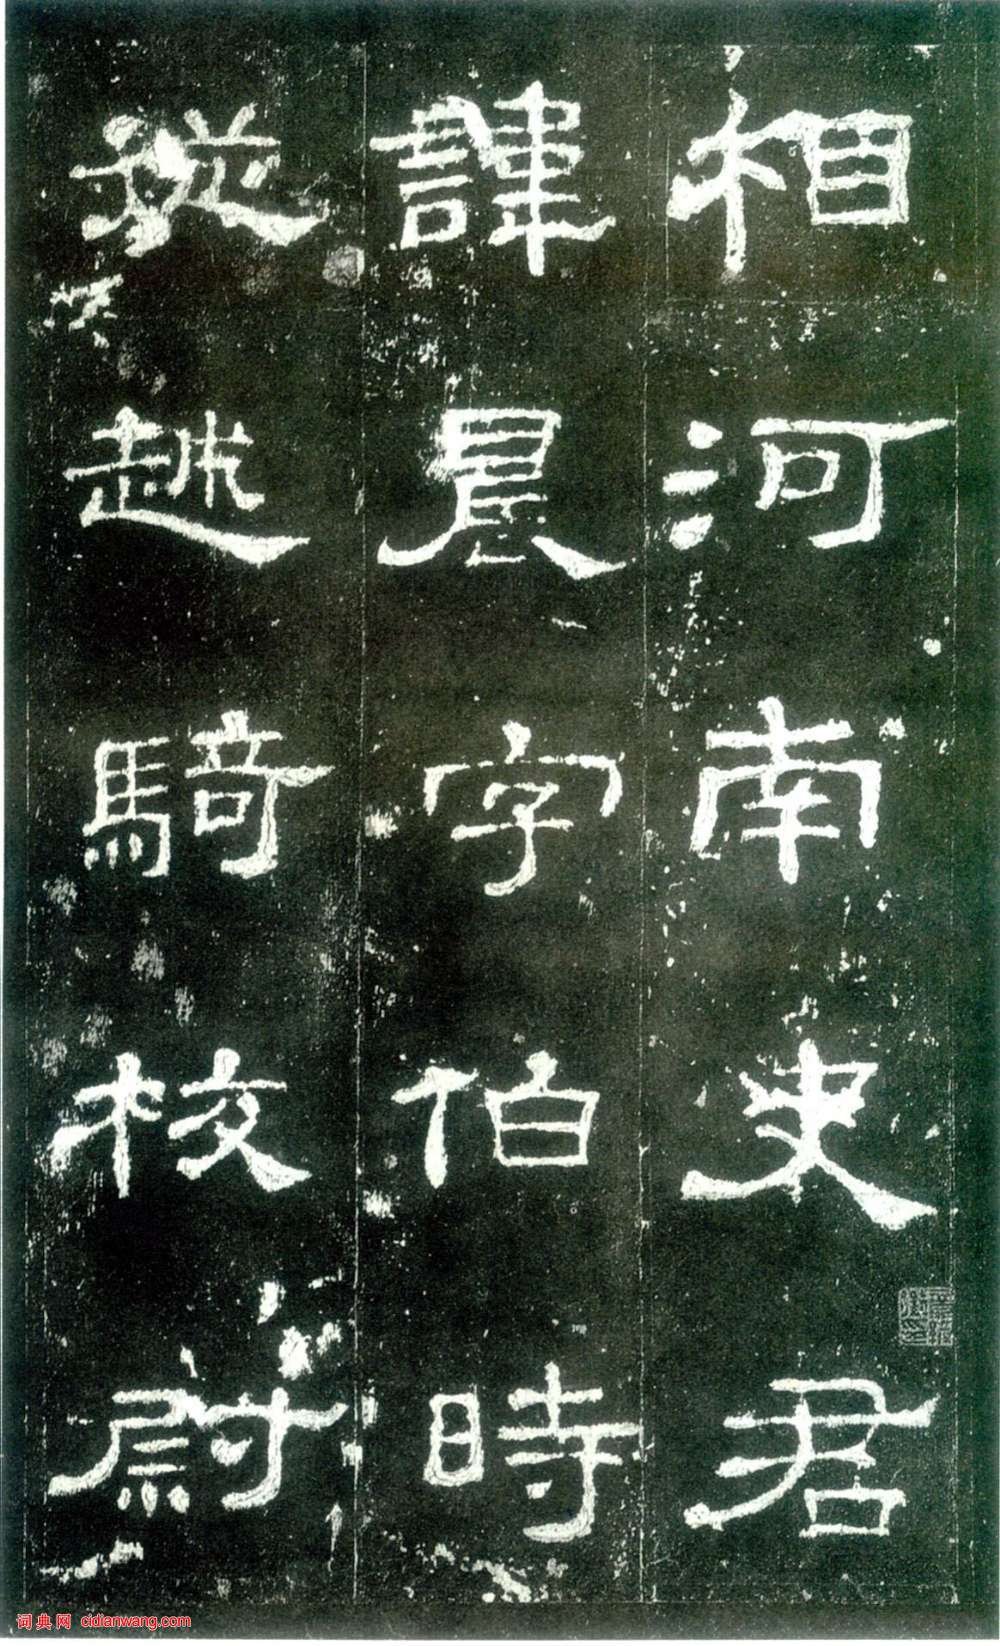 相河南史君
諱晨字伯時
從越騎校尉
词典网 cidianwang.com